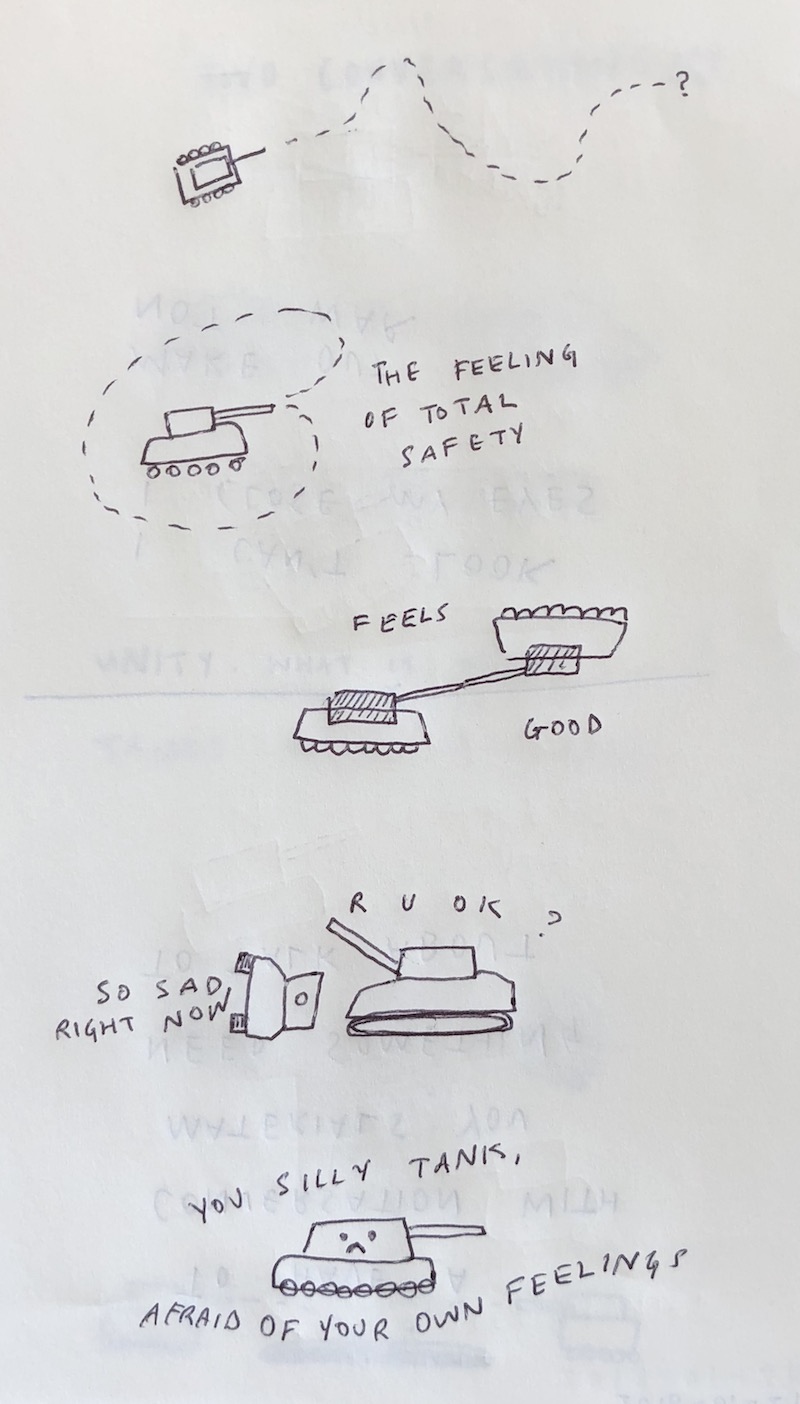 ?
THE FEELING
OF TOTAL
SAFETY
FEELS
GOOD
R U OK ?
SO SAD
RIGHT NOW
YOU SILLY TANK,
AFRAID OF YOUR OWN FEELINGS